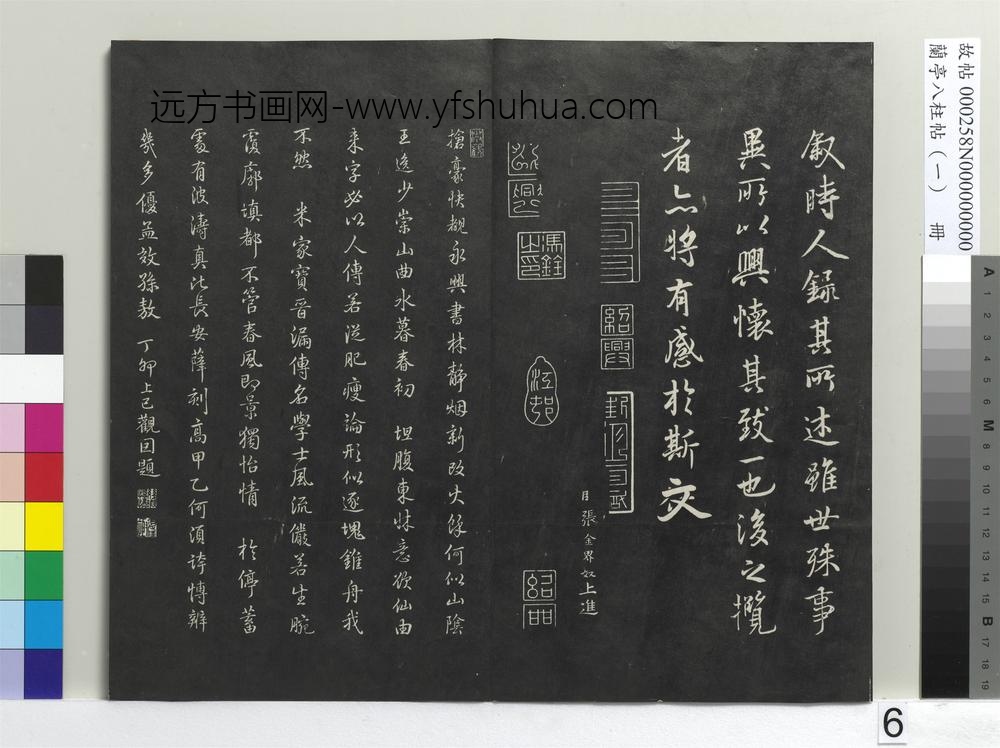 远方书画网-www.yfshuhua.com
故帖 000258N000000000
蘭亭八柱帖（一） 冊
叙時人錄其所述雖世殊事
異所以興懷其致一也後之攬
者亦將有感於斯文
張金界奴上進
紹興
馮銓之印
搶毫快覩永興書林靜烟新改火餘何似山陰
王逸少崇山曲水暮春初 坦腹東牀意欲仙由
来字必以人傳若從肥瘦論形似逐塊錐舟我
不然 米家寶晉漏傳名學士風流儼若生腕
廓填都不管春風即景獨怡情 於停蓄
處有波濤真比長安薛刻高甲乙何須誇博辨
幾多優孟效孫敖 丁卯上巳觀因題
6
A 1 2 3 4 5 6 M 8 9 10 11 12 13 14 15 B 17 18 19